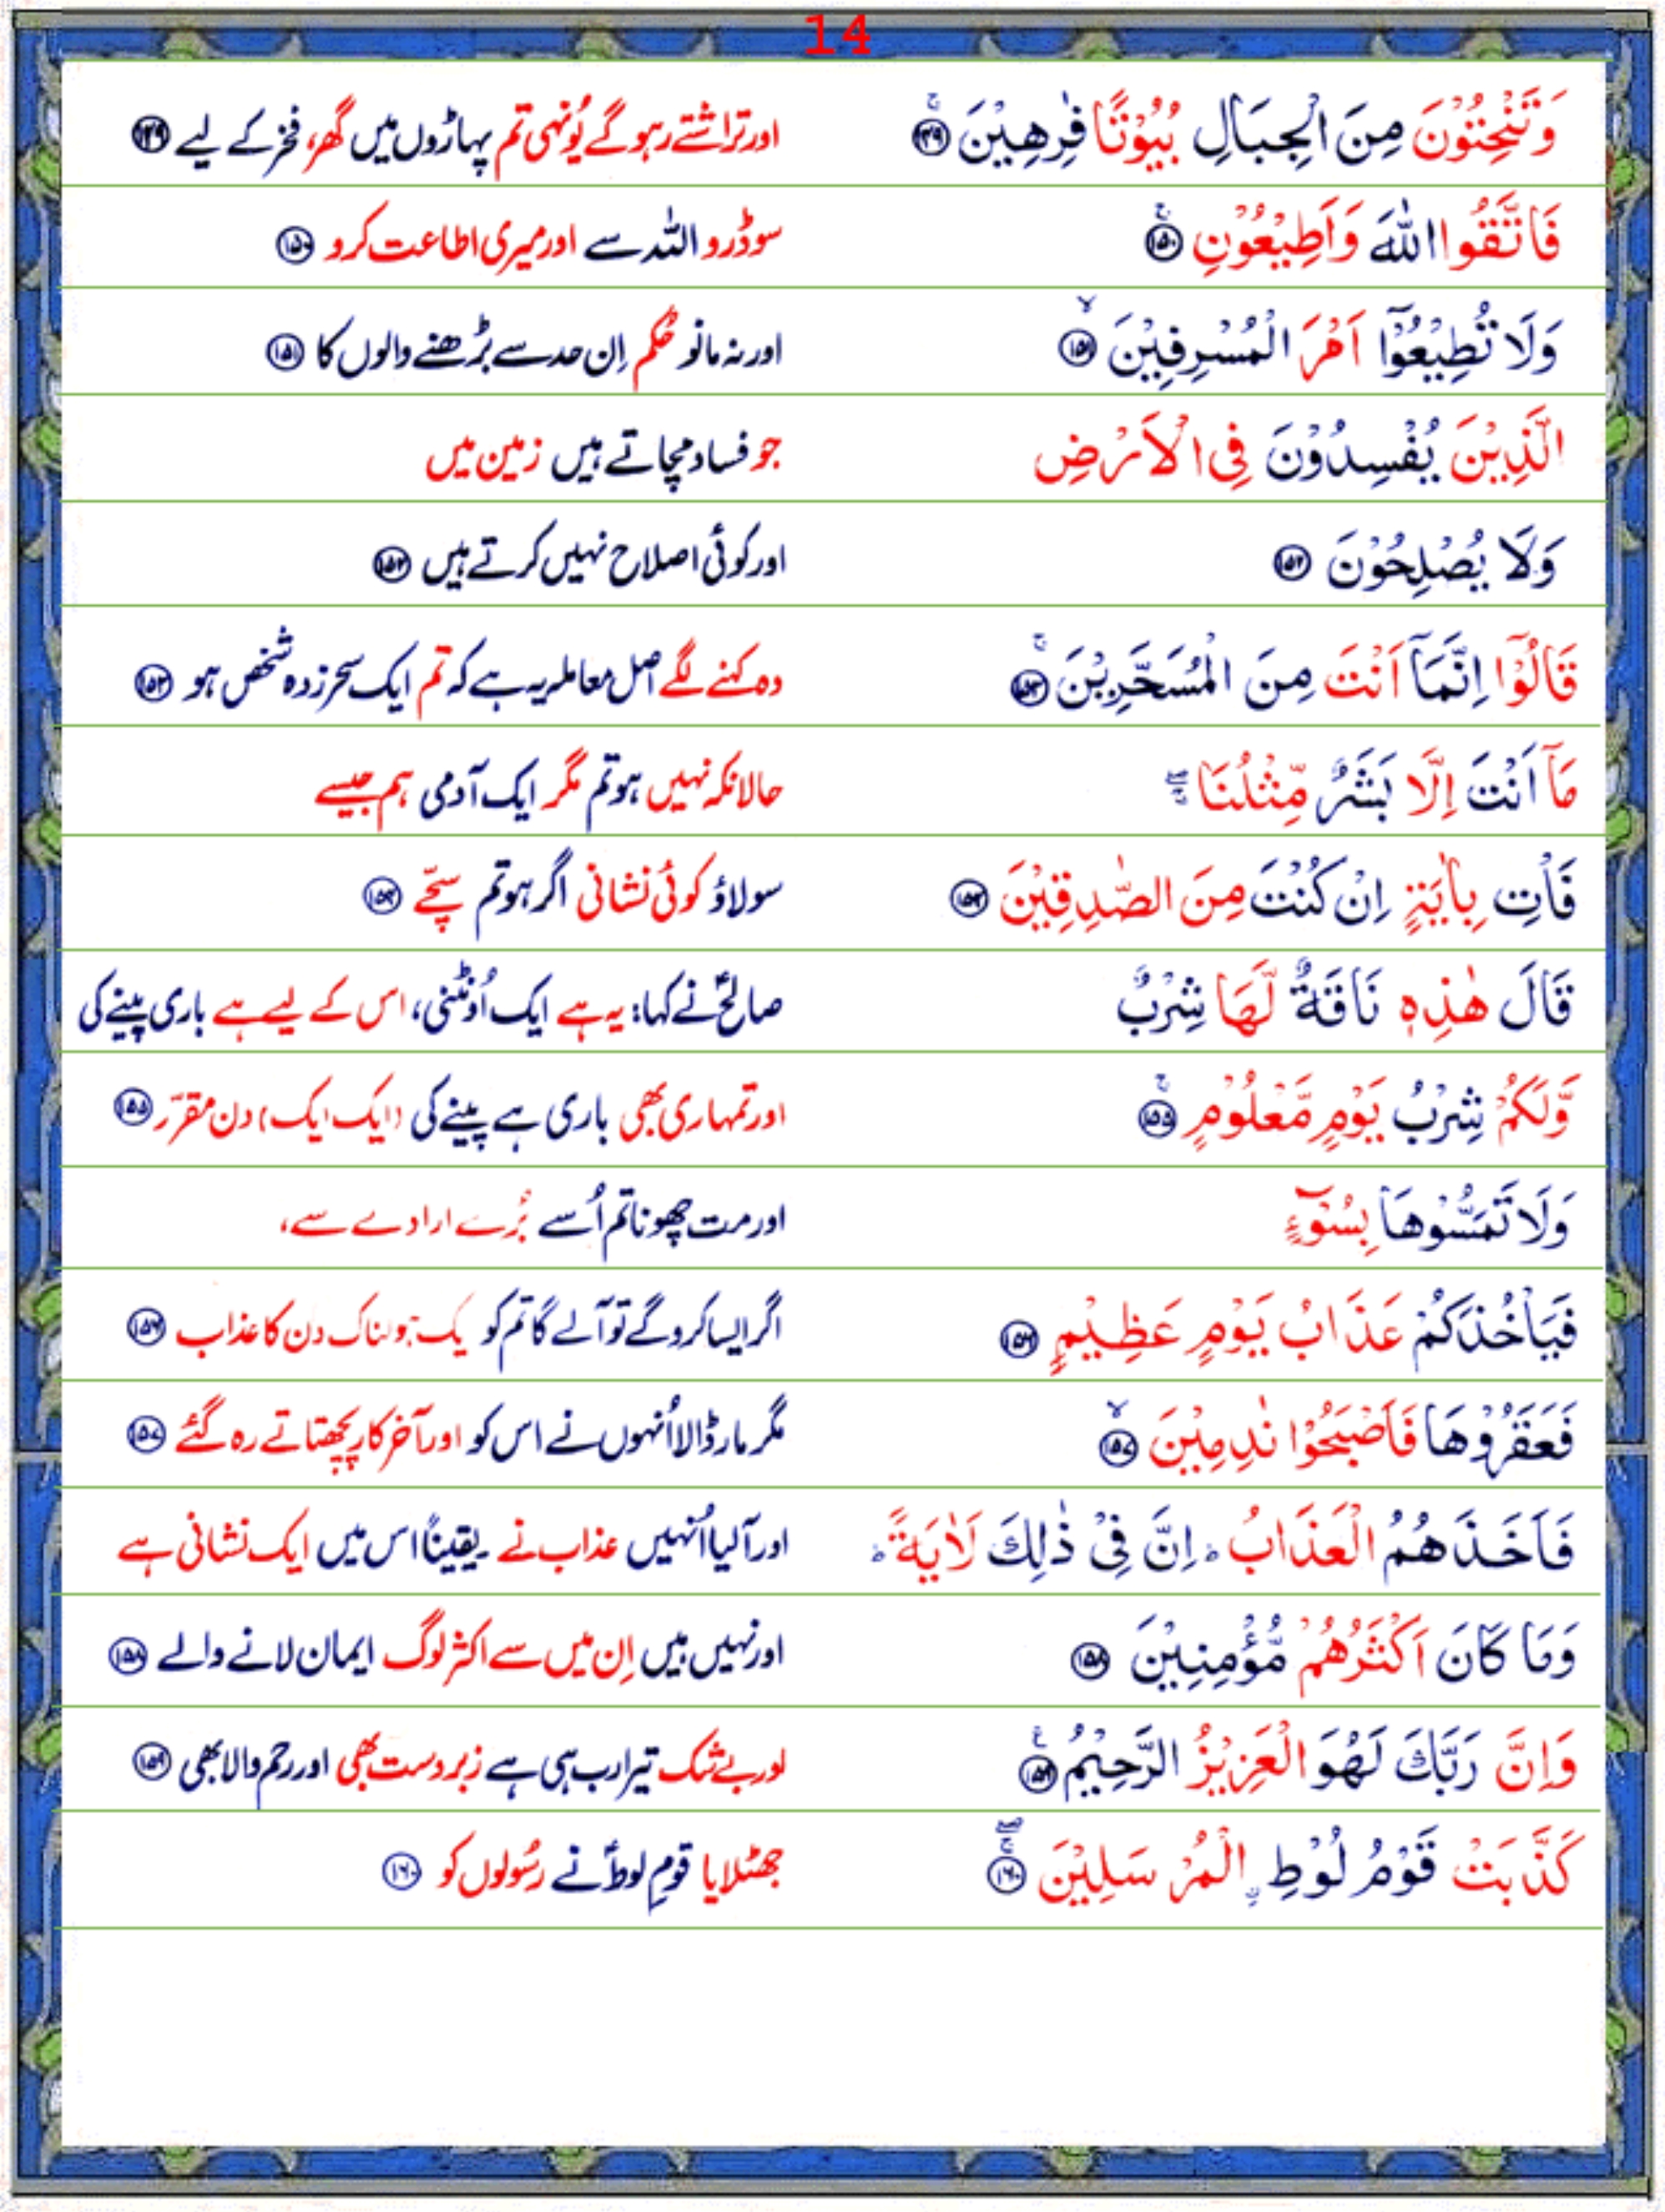 14
وَتَنْحِتُوْنَ مِنَ الْجِبَالِ بُيُوْتًا فٰرِهِيْنَ ۚ ﴿۱۴۹﴾ اور تراشتے رہو گے یُونہی تم پہاڑوں میں گھر، فخر کے لیے ﴿۱۴۹﴾
فَاتَّقُوا اللّٰهَ وَاَطِيْعُوْنِ ۚ ﴿۱۵۰﴾ سو ڈرو اللہ سے اور میری اطاعت کرو ﴿۱۵۰﴾
وَلَا تُطِيْعُوْٓا اَمْرَ الْمُسْرِفِيْنَ ۙ ﴿۱۵۱﴾ اور نہ مانو حُکم اِن حد سے بڑھنے والوں کا ﴿۱۵۱﴾
الَّذِيْنَ يُفْسِدُوْنَ فِى الْاَرْضِ جو فساد مچاتے ہیں زمین میں
وَلَا يُصْلِحُوْنَ ﴿۱۵۲﴾ اور کوئی اصلاح نہیں کرتے ہیں ﴿۱۵۲﴾
قَالُوْٓا اِنَّمَآ اَنْتَ مِنَ الْمُسَحَّرِيْنَ ۚ ﴿۱۵۳﴾ وہ کہنے لگے اصل معاملہ یہ ہے کہ تم ایک سحر زدہ شخص ہو ﴿۱۵۳﴾
مَآ اَنْتَ اِلَّا بَشَرٌ مِّثْلُنَا ۖ حالانکہ نہیں ہو تم مگر ایک آدمی ہم جیسے
فَاْتِ بِاٰيَةٍ اِنْ كُنْتَ مِنَ الصّٰدِقِيْنَ ﴿۱۵۴﴾ سو لاؤ کوئی نشانی اگر ہو تم سچّے ﴿۱۵۴﴾
قَالَ هٰذِهٖ نَاقَةٌ لَّهَا شِرْبٌ صالحؑ نے کہا: یہ ہے ایک اُونٹنی، اس کے لیے ہے باری پینے کی
وَّلَكُمْ شِرْبُ يَوْمٍ مَّعْلُوْمٍ ۚ ﴿۱۵۵﴾ اور تمہاری بھی باری ہے پینے کی (ایک ایک) دن مقرّر ﴿۱۵۵﴾
وَلَا تَمَسُّوْهَا بِسُوْٓءٍ اور مت چھونا تم اُسے بُرے ارادے سے،
فَيَاْخُذَكُمْ عَذَابُ يَوْمٍ عَظِيْمٍ ﴿۱۵۶﴾ اگر ایسا کرو گے تو آ لے گا تم کو یک ہولناک دن کا عذاب ﴿۱۵۶﴾
فَعَقَرُوْهَا فَاَصْبَحُوْا نٰدِمِيْنَ ۙ ﴿۱۵۷﴾ مگر مار ڈالا اُنہوں نے اس کو اور آخر کار پچھتاتے رہ گئے ﴿۱۵۷﴾
فَاَخَذَهُمُ الْعَذَابُ ؕ اِنَّ فِىْ ذٰلِكَ لَاٰيَةً ؕ اور آ لیا اُنہیں عذاب نے یقیناً اس میں ایک نشانی ہے
وَمَا كَانَ اَكْثَرُهُمْ مُّؤْمِنِيْنَ ﴿۱۵۸﴾ اور نہیں ہیں اِن میں سے اکثر لوگ ایمان لانے والے ﴿۱۵۸﴾
وَاِنَّ رَبَّكَ لَهُوَ الْعَزِيْزُ الرَّحِيْمُ ۚ ﴿۱۵۹﴾ اور بے شک تیرا رب ہی ہے زبردست بھی اور رحم والا بھی ﴿۱۵۹﴾
كَذَّبَتْ قَوْمُ لُوْطِ ۨ الْمُرْسَلِيْنَ ۖۚ ﴿۱۶۰﴾ جھٹلایا قومِ لوطؑ نے رسُولوں کو ﴿۱۶۰﴾